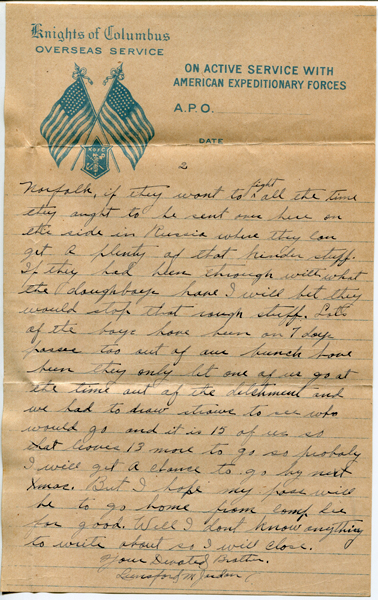 Knights of Columbus
OVERSEAS SERVICE
ON ACTIVE SERVICE WITH
AMERICAN EXPEDITIONARY FORCES
A.P.O.
DATE
K of C
2
Norfolk, if they want to fight all the time
they aught to be sent over here on
the side in Russia where they can
get a plenty of that kinder stuff.
If they had been through with what
the doughboys have I will bet they
would stop that rough stuff. Lots
of the boys have been on 7 day
passes too out of our bunch have
been they only let one of us go at
the time out of the detchment and
we had to draw straws to see who
would go and it is 15 of us so
that leaves 13 more to go so probaly
I will get a chance to go by next
Xmas. But I hope my pass will
be to go home from camp Lee
for good. Well I dont know anything
to write about so I will close.
Your Devoted Brother.
Lunsford M Jordan